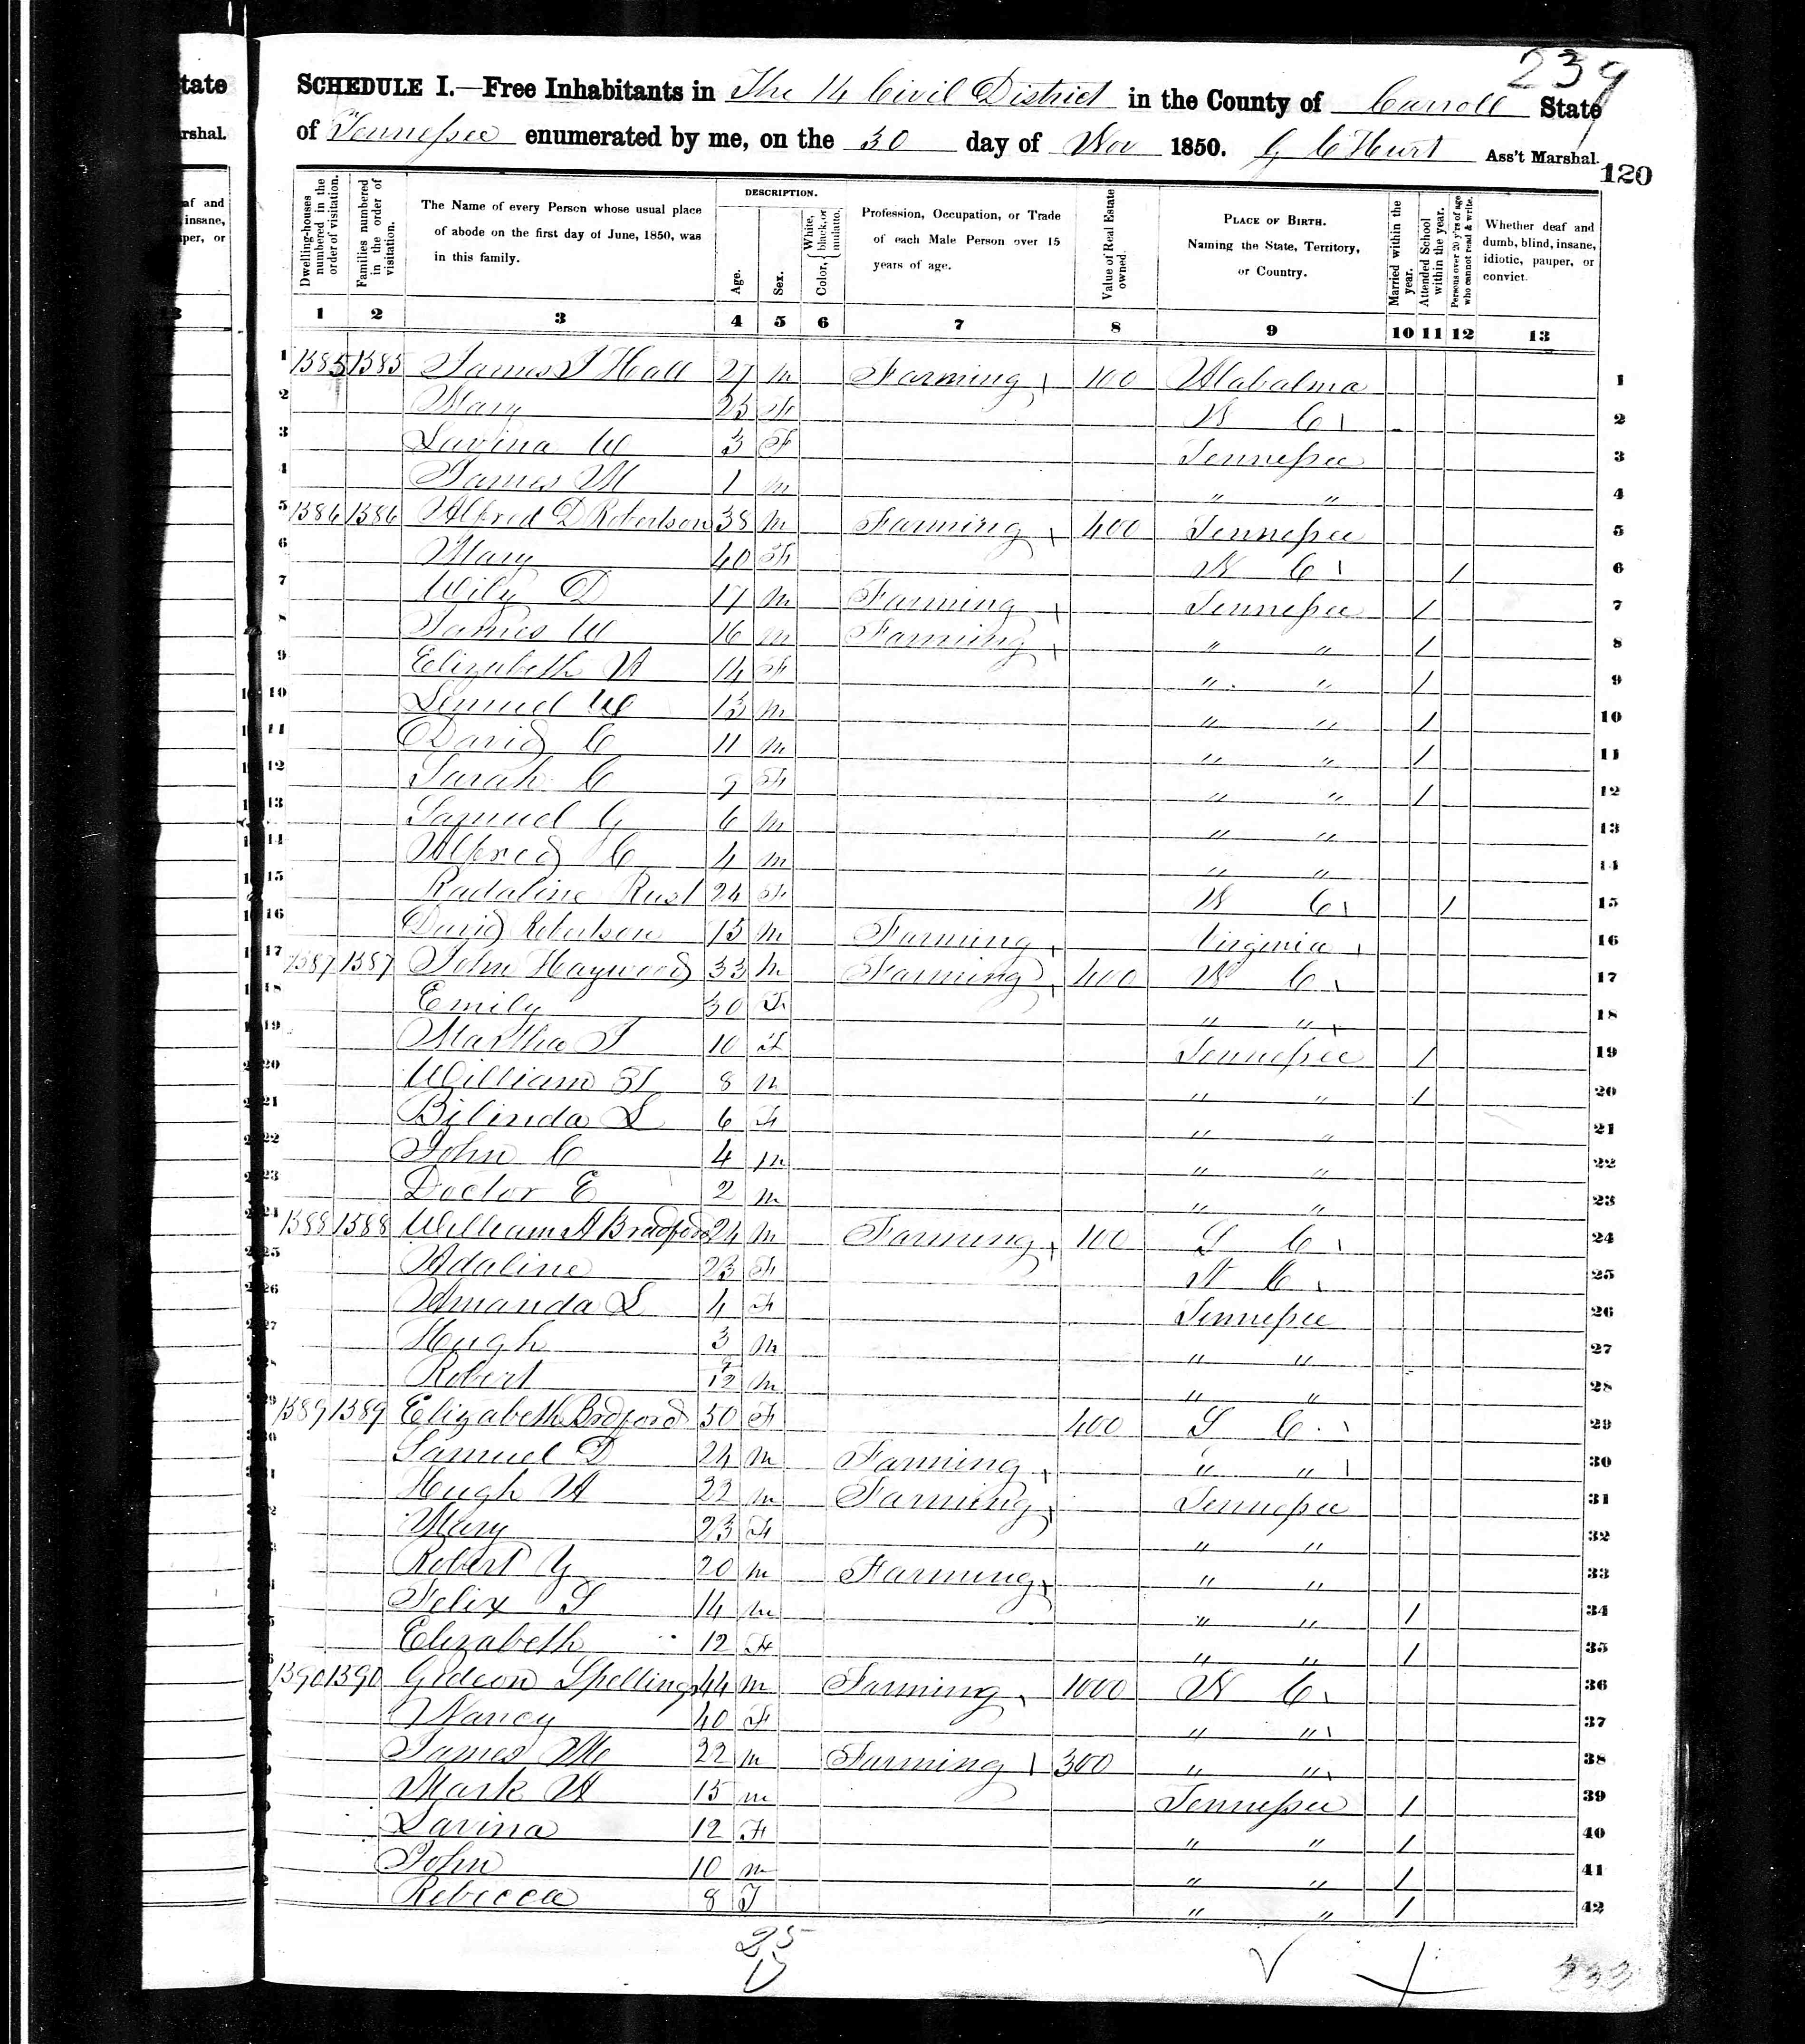 239
SCHEDULE I.—Free Inhabitants in The 14 Civil District in the County of Carroll State
of Tennessee enumerated by me, on the 30 day of Nov 1850. G C Hurt Ass't Marshal.
120
Dwelling-houses numbered in the order of visitation.
Families numbered in the order of visitation.
The Name of every Person whose usual place of abode on the first day of June, 1850, was in this family.
DESCRIPTION.
Age.
Sex.
Color, White, black, or mulatto.
Profession, Occupation, or Trade of each Male Person over 15 years of age.
Value of Real Estate owned.
PLACE OF BIRTH. Naming the State, Territory, or Country.
Married within the year.
Attended School within the year.
Persons over 20 y'rs of age who cannot read & write.
Whether deaf and dumb, blind, insane, idiotic, pauper, or convict.
1 2 3 4 5 6 7 8 9 10 11 12 13
1 1385 1385 James J Hall 27 m Farming 100 Alabalma 1
2 Mary 25 F N C 2
3 Lavina W 3 F Tennessee 3
4 James M 1 m " " 4
5 1386 1386 Alfred D Robertson 38 m Farming 400 Tennessee 5
6 Mary 40 F N C / 6
7 Wily D 17 m Farming Tennessee / 7
8 James W 16 m Farming " " / 8
9 Elizabeth A 14 F " " / 9
10 Lemuel W 13 m " " / 10
11 David C 11 m " " / 11
12 Sarah C F " " / 12
13 Samuel G 6 m " " 13
14 Alfred C 4 m " " 14
15 Rust 24 F N C / 15
16 David Robertson 15 m Farming Virginia 16
17 1387 1387 John Haywood 33 m Farming 400 N C 17
18 Emily 30 F " " 18
19 Martha J 10 F Tennessee / 19
20 William H 8 m " " / 20
21 Bilinda L 6 F " " 21
22 John C 4 m " " 22
23 Doctor E 2 m " " 23
24 1388 1388 William A Bradford 24 m Farming 100 S C 24
25 Adaline 23 F N C 25
26 Amanda L 4 F Tennessee 26
27 Hugh 3 m " " 27
28 Robert 9/12 m " " 28
29 1389 1389 Elizabeth Bradford 50 F 400 S C 29
30 Samuel D 24 m Farming " " 30
31 Hugh A 22 m Farming Tennessee 31
32 Mary 23 F " " 32
33 Robert Y 20 m Farming " " 33
34 Felix J 14 m " " / 34
35 Elizabeth 12 F " " / 35
36 1390 1390 Gideon Spellings 44 m Farming 1000 N C 36
37 Nancy 40 F " " 37
38 James M 22 m Farming 300 " " 38
39 Mark A 15 m Tennessee / 39
40 Lavina 12 F " " / 40
41 John 10 m " " / 41
42 Rebecca 8 F " " / 42
25